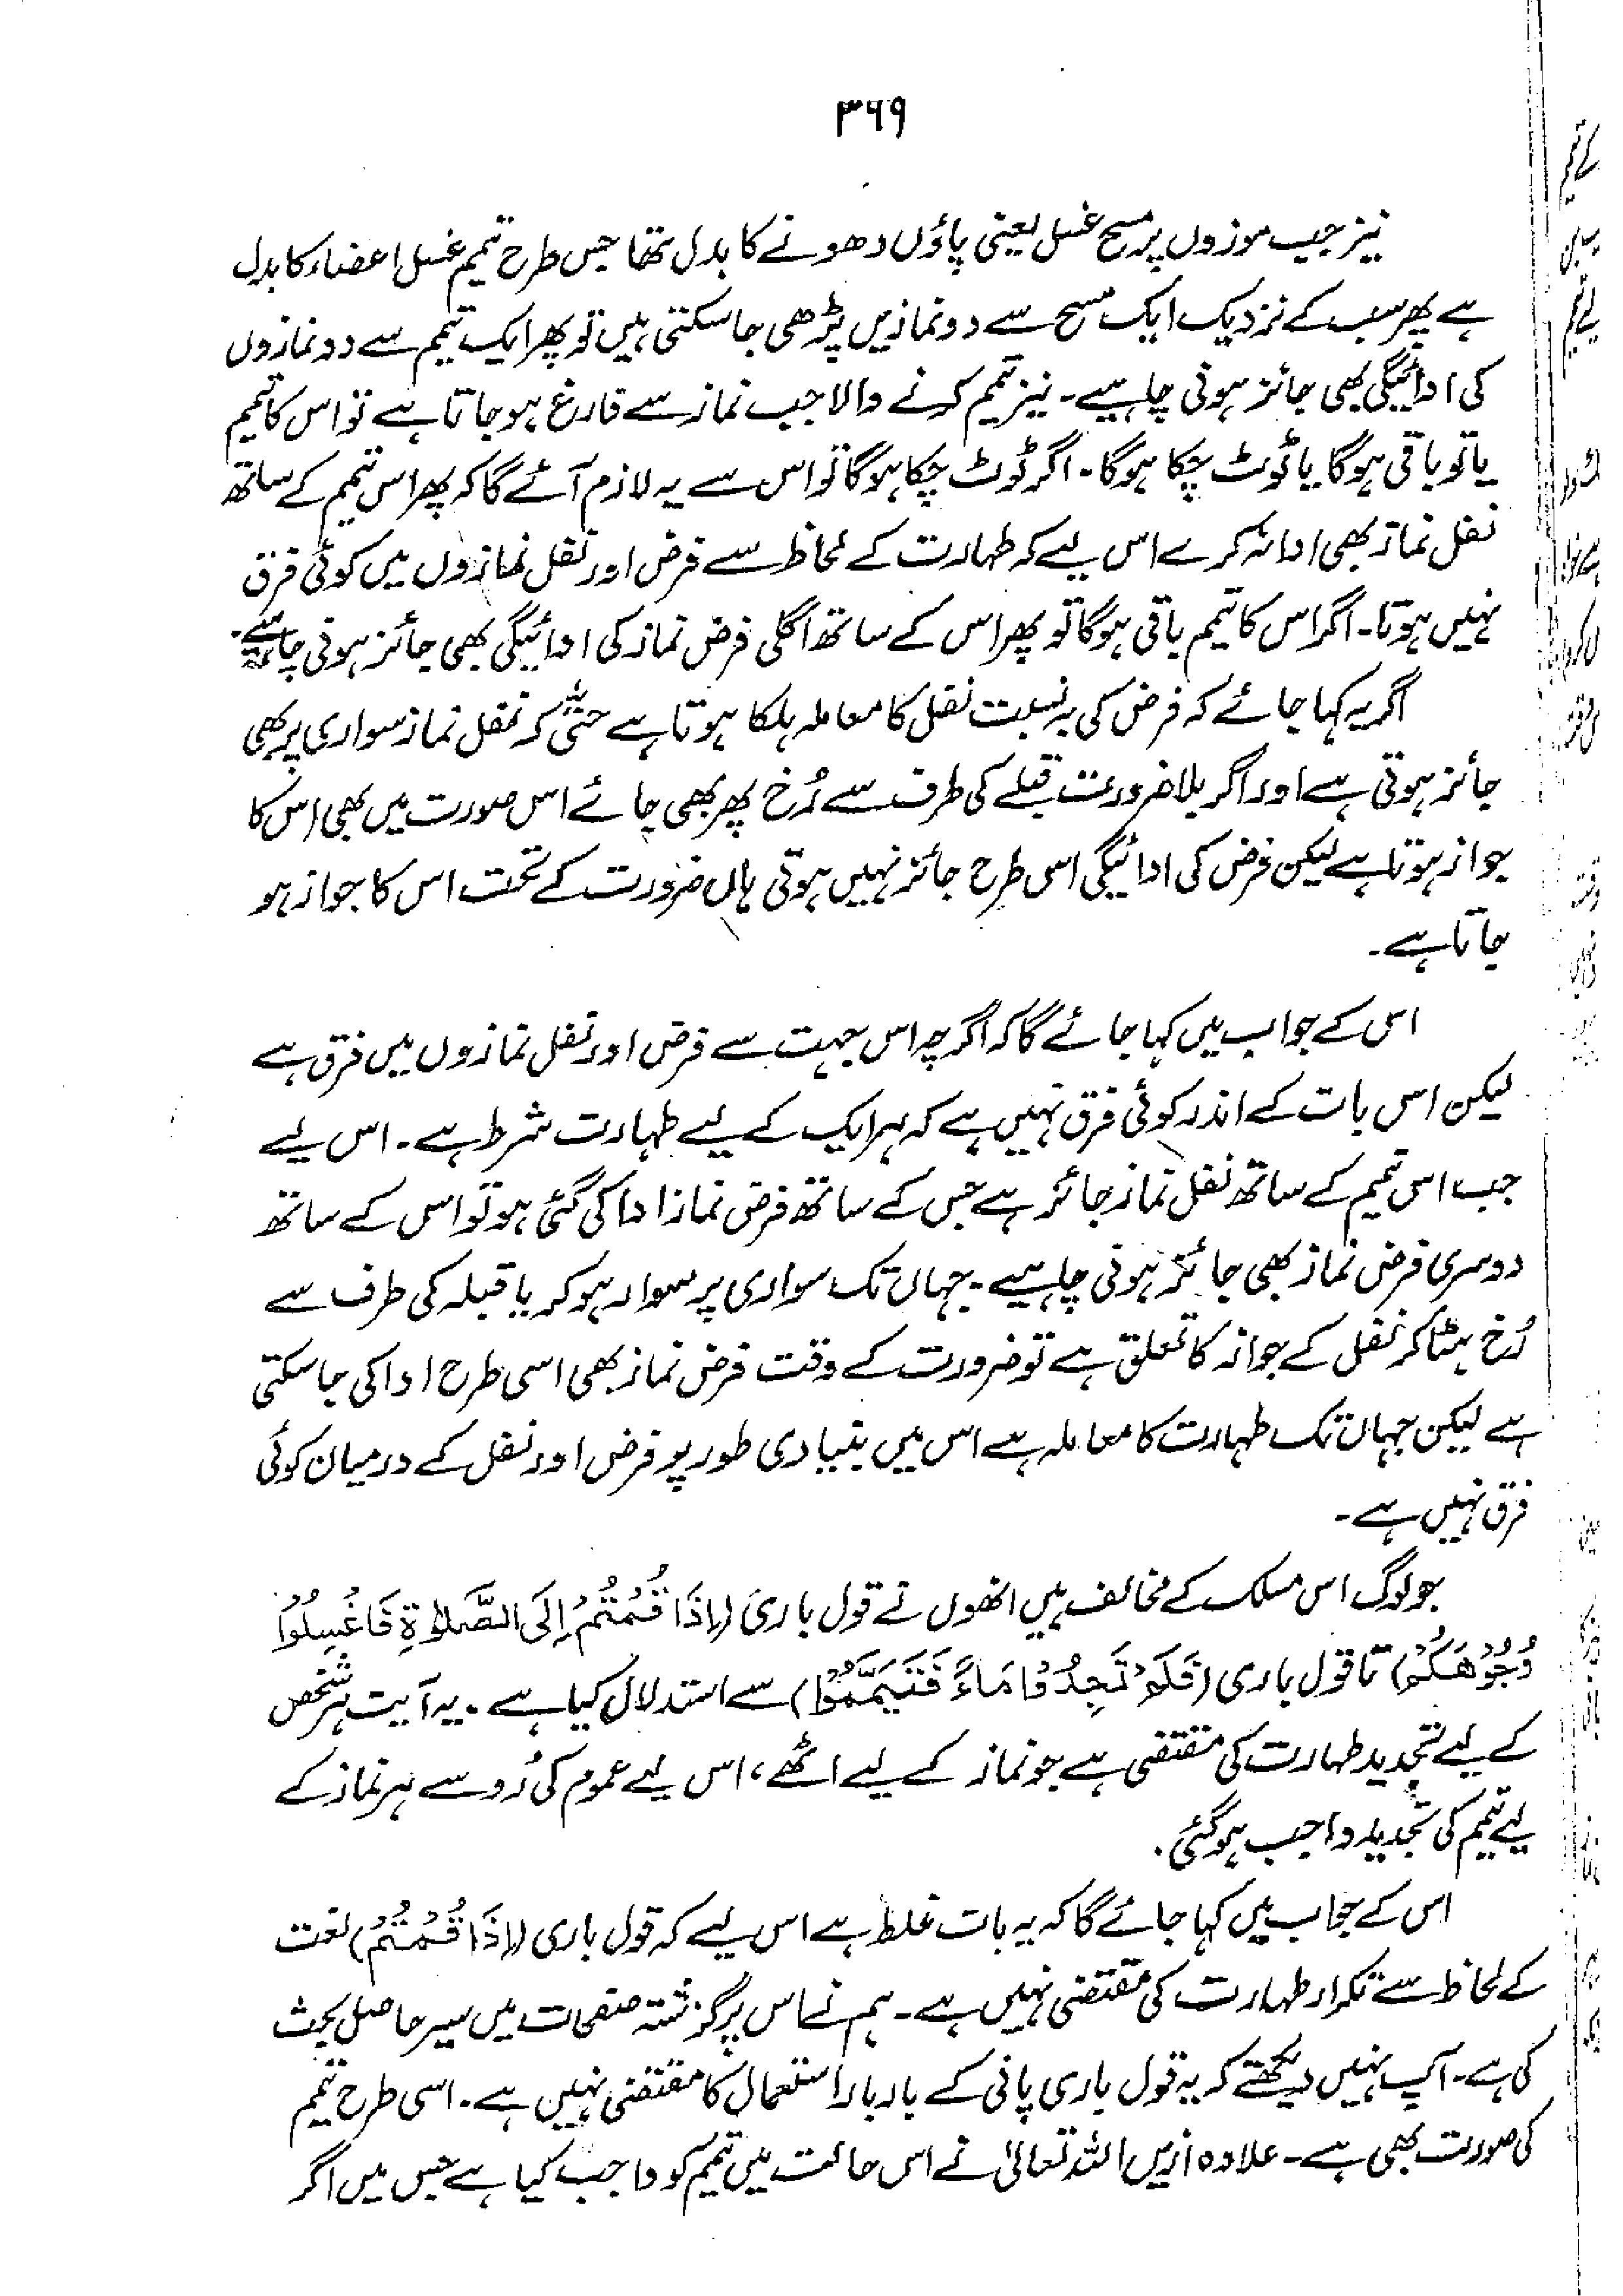 ۳۶۹
نیز جب موزوں پر مسح غسل یعنی پاؤں دھونے کا بدل تھا جس طرح تیمم غسل اعضاء کا بدل
ہے پھر سب کے نزدیک ایک مسح سے دو نمازیں پڑھی جا سکتی ہیں تو پھر ایک تیمم سے دو نمازوں
کی ادائیگی بھی جائز ہونی چاہیے۔ نیز تیمم کرنے والا جب نماز سے فارغ ہو جاتا ہے تو اس کا تیمم
یا تو باقی ہوگا یا ٹوٹ چکا ہوگا۔ اگر ٹوٹ چکا ہوگا تو اس سے یہ لازم آئے گا کہ پھر اس تیمم کے ساتھ
نفل نماز بھی ادا نہ کرے اس لیے کہ طہارت کے لحاظ سے فرض اور نفل نمازوں میں کوئی فرق
نہیں ہوتا۔ اگر اس کا تیمم باقی ہوگا تو پھر اس کے ساتھ اگلی فرض نماز کی ادائیگی بھی جائز ہونی چاہیے۔
اگر یہ کہا جائے کہ فرض کی بہ نسبت نفل کا معاملہ ہلکا ہوتا ہے حتیٰ کہ نفل نماز سواری پر بھی
جائز ہوتی ہے اور اگر بلا ضرورت قبلے کی طرف سے رُخ پھر بھی جائے اس صورت میں بھی اس کا
جواز ہوتا ہے لیکن فرض کی ادائیگی اسی طرح جائز نہیں ہوتی ہاں ضرورت کے تحت اس کا جواز ہو
جاتا ہے۔
اس کے جواب میں کہا جائے گا کہ اگرچہ اس جہت سے فرض اور نفل نمازوں میں فرق ہے
لیکن اس بات کے اندر کوئی فرق نہیں ہے کہ ہر ایک کے لیے طہارت شرط ہے۔ اس لیے
جب اس تیمم کے ساتھ نفل نماز جائز ہے جس کے ساتھ فرض نماز ادا کی گئی ہو تو اس کے ساتھ
دوسری فرض نماز بھی جائز ہونی چاہیے۔ جہاں تک سواری پر سوار ہو کر یا قبلہ کی طرف سے
رُخ ہٹا کر نفل کے جواز کا تعلق ہے تو ضرورت کے وقت فرض نماز بھی اسی طرح ادا کی جا سکتی
ہے لیکن جہاں تک طہارت کا معاملہ ہے اس میں بنیادی طور پر فرض اور نفل کے درمیان کوئی
فرق نہیں ہے۔
جو لوگ اس مسلک کے مخالف ہیں انھوں نے قول باری (اِذَا قُمْتُمْ اِلَی الصَّلٰوةِ فَاغْسِلُوْا
وُجُوْهَکُمْ) تا قول باری (فَلَمْ تَجِدُوْا مَاءً فَتَیَمَّمُوْا) سے استدلال کیا ہے۔ یہ آیت ہر شخص
کے لیے تجدید طہارت کی مقتضی ہے جو نماز کے لیے اٹھے، اس لیے عموم کی رُو سے ہر نماز کے
لیے تیمم کی تجدید واجب ہو گئی۔
اس کے جواب میں کہا جائے گا کہ یہ بات غلط ہے اس لیے کہ قول باری (اِذَا قُمْتُمْ) لغت
کے لحاظ سے تکرار طہارت کی مقتضی نہیں ہے۔ ہم نے اس پر گزشتہ صفحات میں سیر حاصل بحث
کی ہے۔ آپ نہیں دیکھتے کہ یہ قول باری پانی کے بار بار استعمال کا مقتضی نہیں ہے۔ اسی طرح تیمم
کی صورت بھی ہے۔ علاوہ ازیں اللہ تعالیٰ نے اس حالت میں تیمم کو واجب کیا ہے جس میں اگر